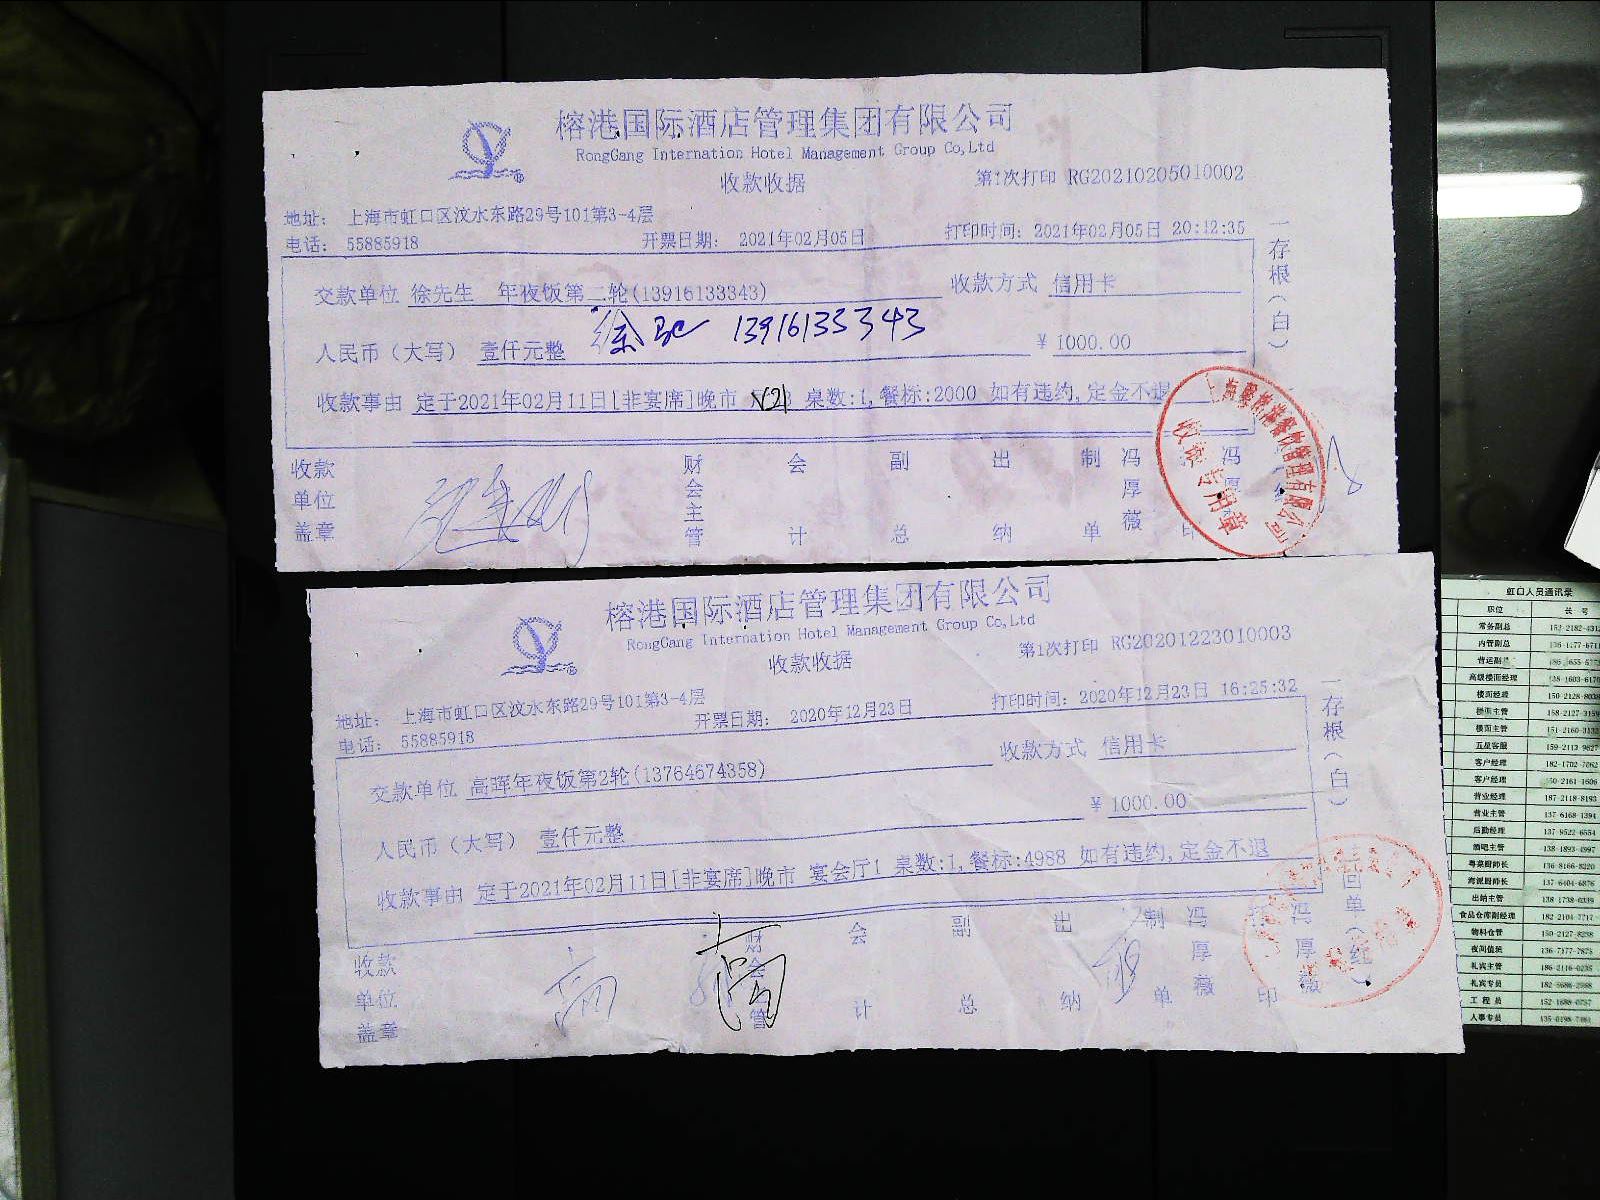 榕港国际酒店管理集团有限公司
RongGang Internation Hotel Management Group Co,Ltd
收款收据
第1次打印 RG20210205010002
地址： 上海市虹口区汶水东路29号101第3-4层
电话： 55885918
开票日期： 2021年02月05日
打印时间：2021年02月05日 20:12:35
交款单位 徐先生 年夜饭第二轮(13916133343)
收款方式 信用卡
徐 13916133343
人民币（大写） 壹仟元整
￥ 1000.00
收款事由 定于2021年02月11日[非宴席]晚市 V21 桌数:1,餐标:2000 如有违约,定金不退
一存根(白)
收款单位盖章
财会主管
会计
副总
出纳
制单
冯厚薇
印
冯
收款专用章
榕港国际酒店管理集团有限公司
RongGang Internation Hotel Management Group Co,Ltd
收款收据
第1次打印 RG20201223010003
地址： 上海市虹口区汶水东路29号101第3-4层
电话： 55885918
开票日期： 2020年12月23日
打印时间：2020年12月23日 16:25:32
交款单位 高晖年夜饭第2轮(13764674358)
收款方式 信用卡
人民币（大写） 壹仟元整
￥ 1000.00
收款事由 定于2021年02月11日[非宴席]晚市 宴会厅1 桌数:1,餐标:4988 如有违约,定金不退
一存根(白)
二回单(红)
收款单位盖章
高
财会主管
会计
副总
出纳
制单
冯厚薇
打印
冯厚薇
虹口人员通讯录
职位 长 号
常务副总
内管副总
营运副总
高级楼面经理
楼面经理
楼面主管
楼面主管
五星客服
客户经理
客户经理
营业经理
营业主管
后勤经理
酒吧主管
粤菜厨师长
海派厨师长
出纳主管
食品仓库副经理
物料仓管
夜间值班
礼宾主管
礼宾专员
工 程 员
人事专员